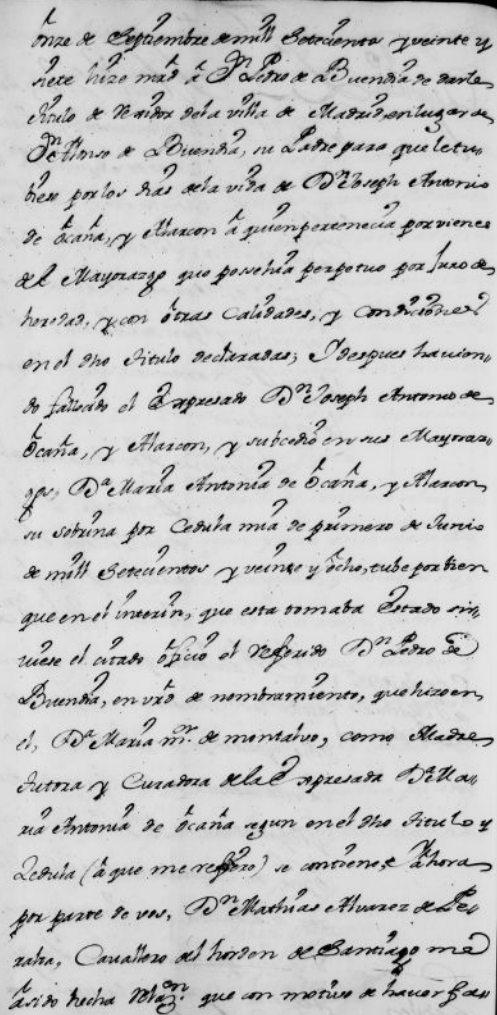 onze de Septiembre de mill Setecientos y veinte y
siete hize mrd à Dn Pedro de Buendia de darle
titulo de Rexidor de la villa de Madrid, en lugar de
Dn Alonso de Buendia, su Padre para que le tu-
biese por los dias de la vida de Dn Joseph Antonio
de ôcaña, y Alarcon â quien pertenecia por vienes
del Mayorazgo que possehia perpetuo por Juro de
heredad, y con ôtras Calidades, y Condiciones
en el dho titulo declaradas; I despues havien-
do fallecido el Expresado Dn Joseph Antonio de
ôcaña, y Alarcon, y subcedio en sus Mayoraz-
gos, Da Maria Antonia de ôcaña, y Alarcon
su sobrina por Cedula mia de primero de Junio
de mill Setecientos y veinte y ôcho, tube por bien
que en el interin, que esta tomaba Estado sir-
viese el citado ôficio el Referido Dn Pedro de
Buendia, en vrd de nombramiento, que hizo en
el, Da Maria de montalvo, como Madre
tutora y Curadora de la Expresada Da Ma-
ria Antonia de ôcaña segun en el dho titulo y
Zedula (â que me refiero) se contiene, âhora
por parte de vos, Dn Mathias Alvarez de Pe-
ralta, Cavallero del horden de Santiago me
â sido hecha Relazon. que con motivo de haver